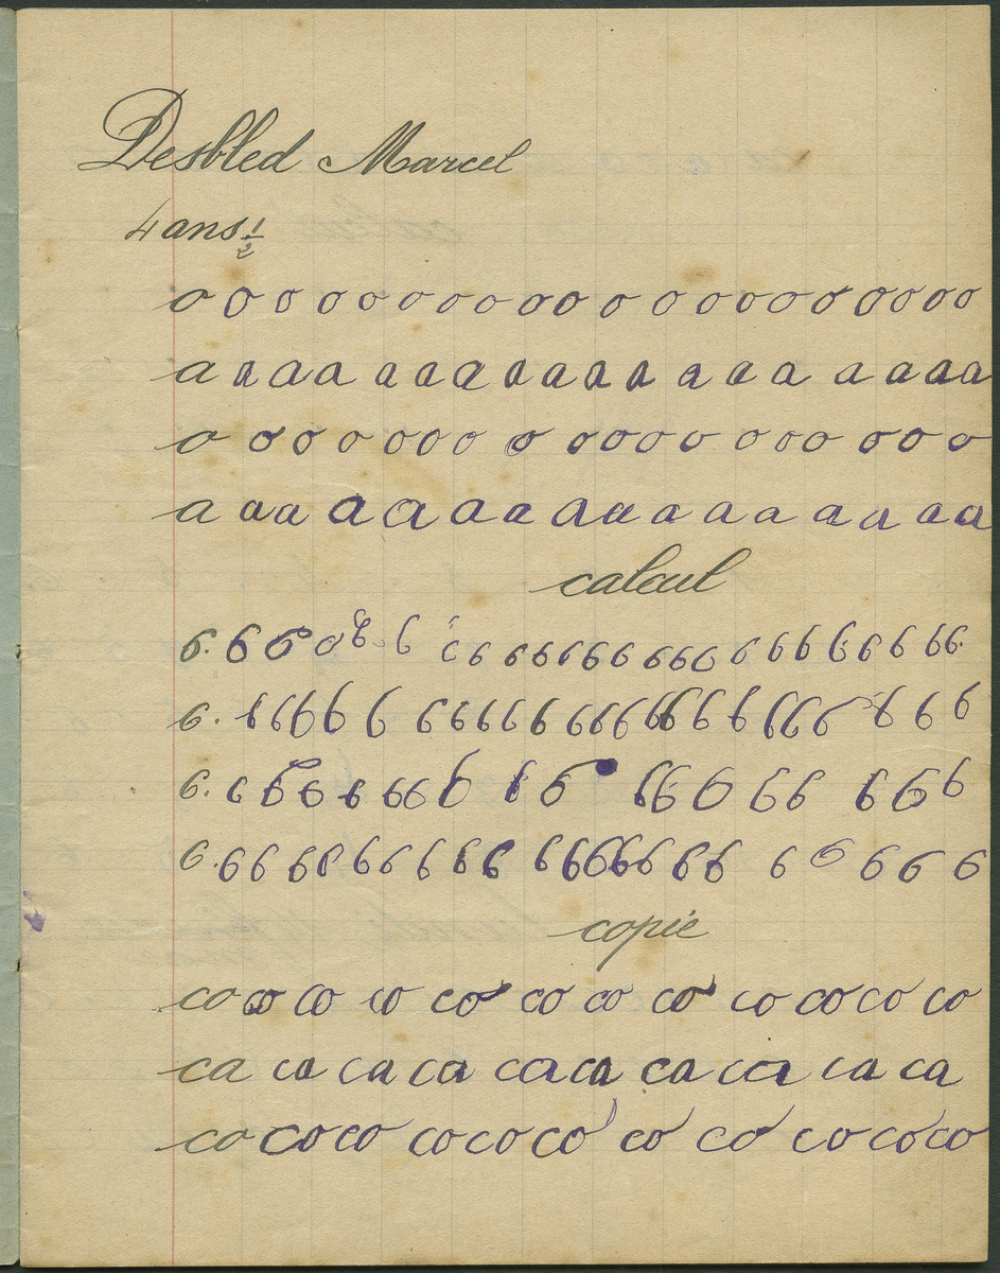 Desbled Marcel
4 ans 1/2
o o o o o o o o o o o o o o o o o o o o o o
a a a a a a a a a a a a a a a a a a a
o o o o o o o o o o o o o o o o o o o
a a a a a a a a a a a a a a a a
calcul
6. 6 6 6 8 6 6 6 6 6 6 6 6 6 6 6 6 6 6 6 6 6 6 6 6
6. 6 6 6 6 6 6 6 6 6 6 6 6 6 6 6 6 6 6 6 6 6 6 6 6 6 6
6. 6 6 6 6 6 6 6 6 6 6 6 6 6 6 6 6 6 6
6. 6 6 6 6 6 6 6 6 6 6 6 6 6 6 6 6 6 6 6 6 6 6 6
copie
co co co co co co co co co co co co
ca ca ca ca ca ca ca ca ca ca
co co co co co co co co co co co